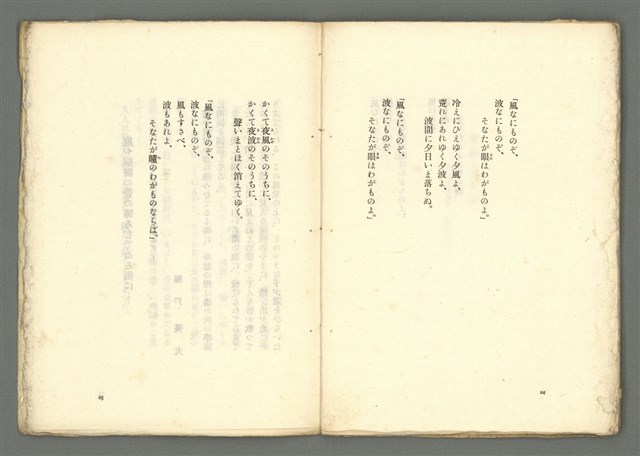 「風なにものぞ、
波なにものぞ、
そなたが眼はわがものよ。」
冷えにひえゆく夕風よ、
荒れにあれゆく夕波よ、
波間に夕日いま落ちぬ。
「風なにものぞ、
波なにものぞ、
そなたが眼はわがものよ。」
24
かくて夜風のそのうちに、
かくて夜波のそのうちに、
聲いまとほく消えてゆく。
「風なにものぞ、
波なにものぞ、
風もすさべ、
波もあれよ、
そなたが瞳のわがものならば。」
25